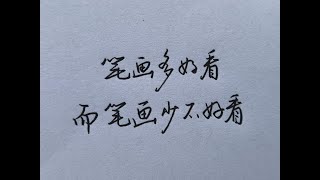 笔画多好看
而笔画少不好看